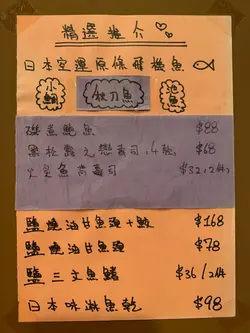 精選推介
日本空運原條飛機魚
小鯛
秋刀魚
池魚
磯煮鮑魚 $88
黑松露之戀壽司,4款 $68
火炙魚 壽司 $32,2件
鹽燒油甘魚頭+鮫 $168
鹽燒油甘魚頭 $78
鹽 三文魚鰭 $36/2件
日本味淋魚乾 $98